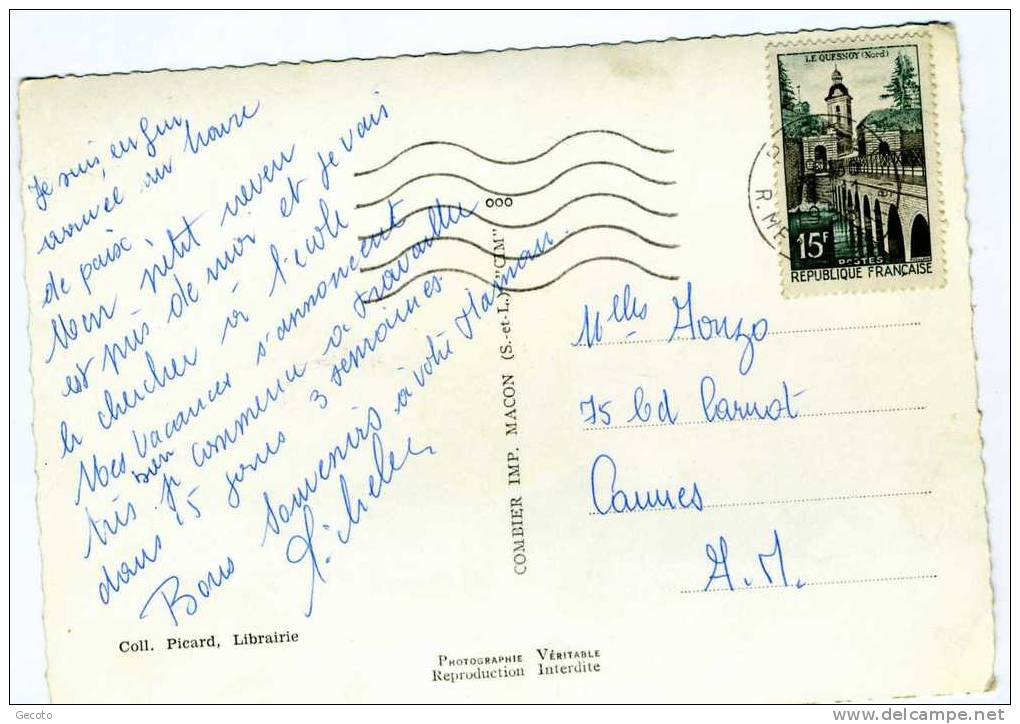 Je suis, enfin
arrivée au havre
de paix.
Mon petit neveu
est près de moi et je vais
le chercher à l'école
Mes vacances s'annoncent
très bien je commence à travailler
dans 15 jours 3 semaines.
Bons Souvenirs à votre Maman.
LE QUESNOY (Nord)
15F
POSTES
REPUBLIQUE FRANÇAISE
Mlles Gonzo
75 Bd Carnot
Cannes
A.M.
COMBIER IMP. MACON (S.-et-L.) "CIM"
Coll. Picard, Librairie
PHOTOGRAPHIE VÉRITABLE
Reproduction Interdite
Gecoto
www.delcampe.net